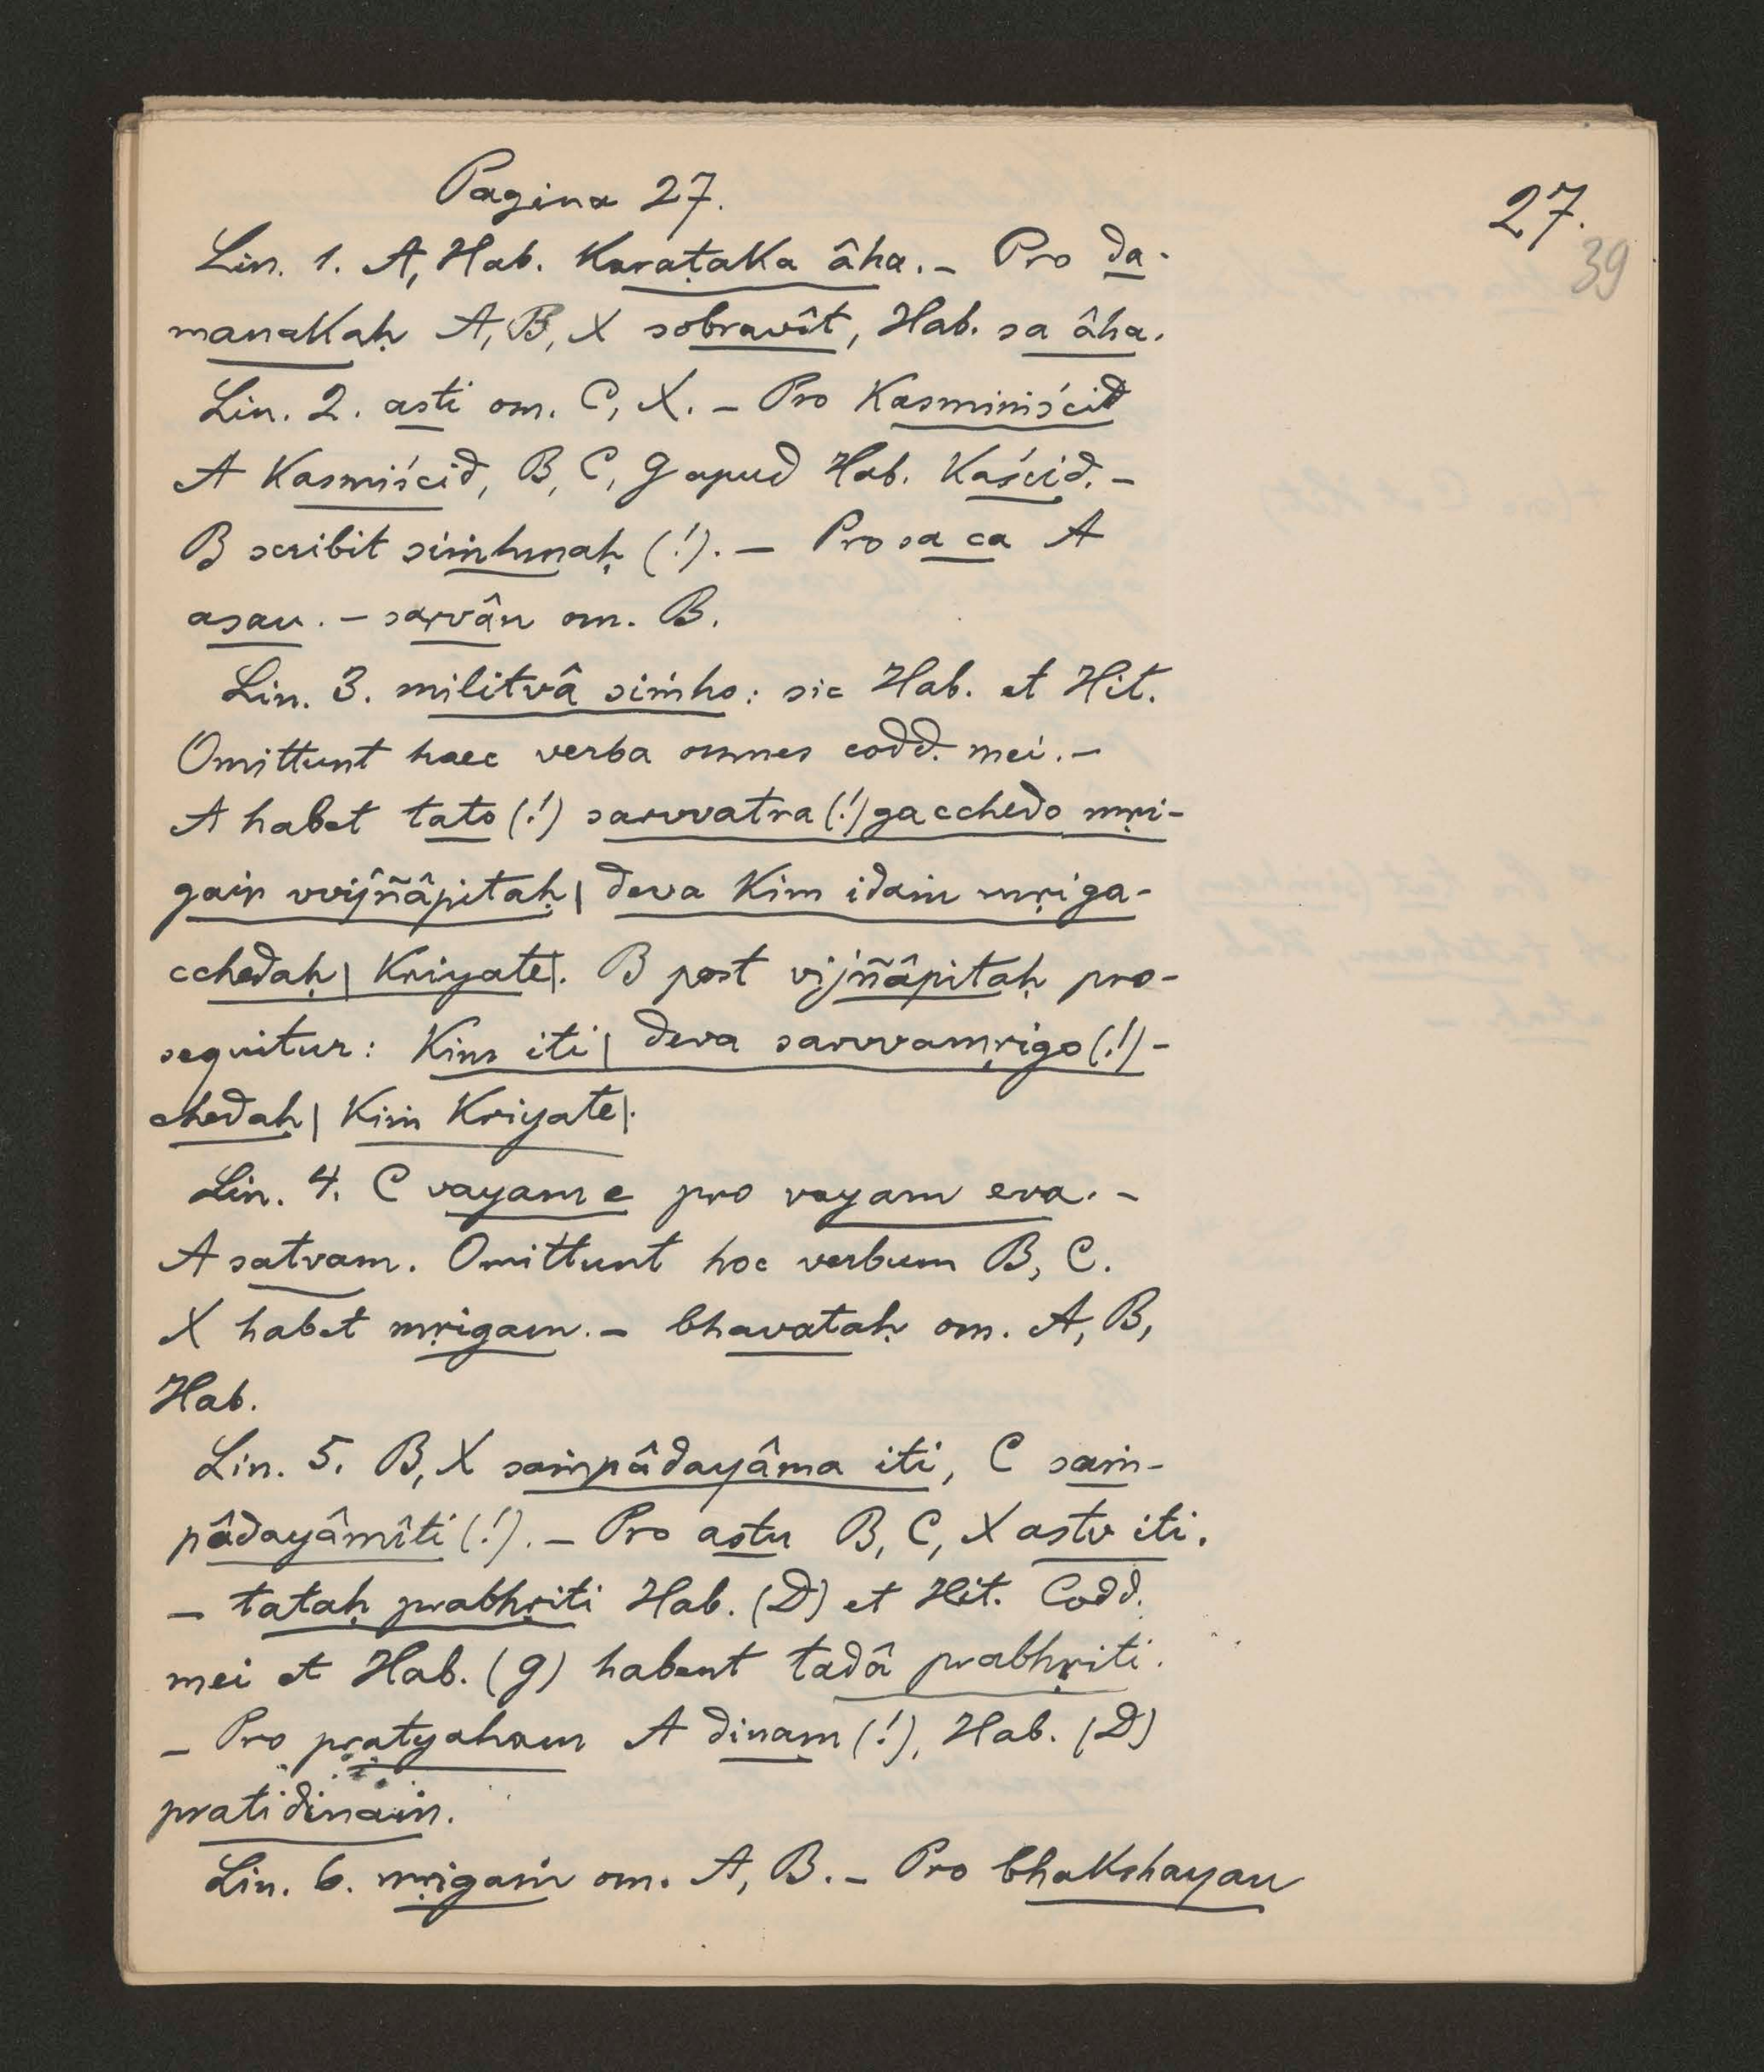 Pagina 27.
27.
39
Lin. 1. A, Hab. Karaṭaka âha. – Pro da-
manakaḥ A, B, X sobravît, Hab. sa âha.
Lin. 2. asti om. C, X. – Pro kasminiścid
A kasmiścid, B, C, g apud Hab. kaścid. –
B scribit siṁhmaḥ (!). – Pro sa ca A
asau. – sarvân om. B.
Lin. 3. militvâ siṁho: sic Hab. et Hit.
Omittunt haec verba omnes codd. mei. –
A habet tato (!) sarvvatra (!) gacchedo mṛi-
gair vvijñâpitaḥ | deva kim idaṁ mṛiga-
cchedaḥ | kriyate |. B post vijñâpitaḥ pro-
sequitur: kim iti | deva sarvvamṛigo (!) -
chedaḥ | kiṁ kriyate |.
Lin. 4. C vayam e pro vayam eva. –
A satvam. Omittunt hoc verbum B, C.
X habet mṛigam. – bhavataḥ om. A, B,
Hab.
Lin. 5. B, X saṁpâdayâma iti, C saṁ-
pâdayâmîti (!). – Pro astu B, C, X astv iti.
– tataḥ prabhṛiti Hab. (D) et Hit. Codd.
mei et Hab. (g) habent tadâ prabhṛiti.
– Pro pratyaham A dinam (!), Hab. (D)
pratidinaṁ.
Lin. 6. mṛigaṁ om. A, B. – Pro bhakshayan